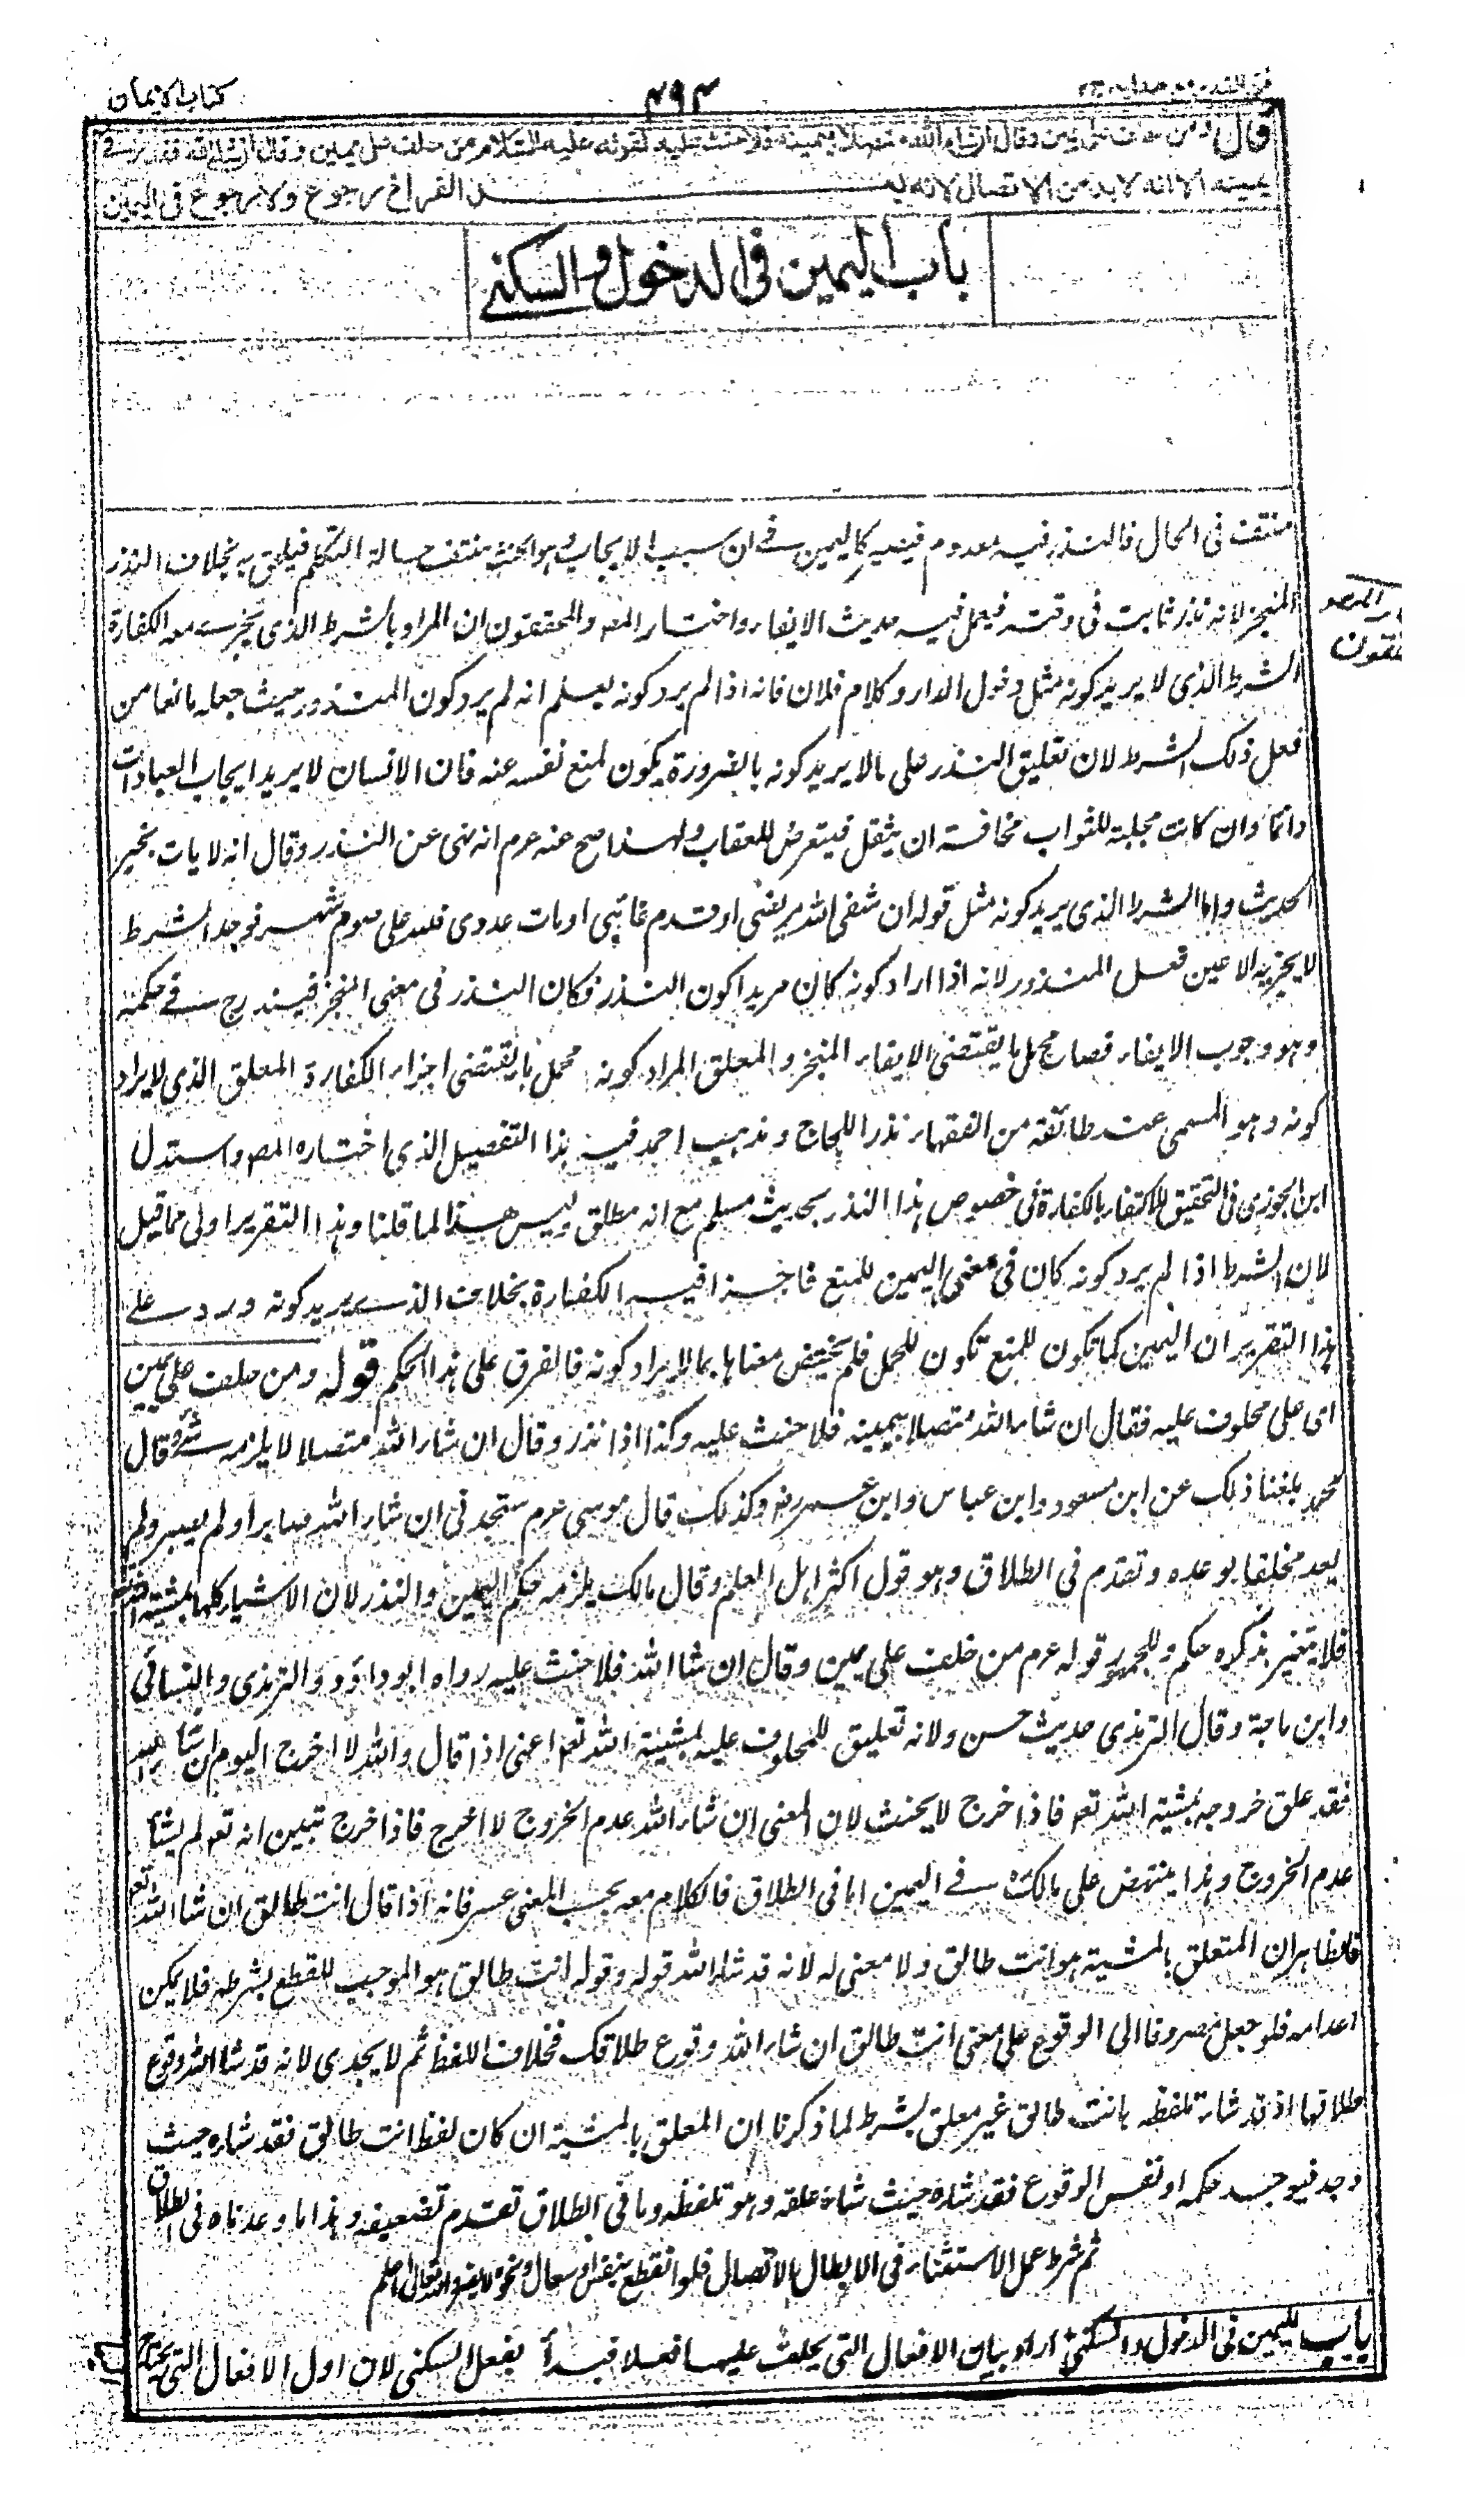 كتاب الايمان
٤٩٣
قال ومن حلف على يمين وقال ان شاء الله متصلا بيمينه فلا حنث عليه لقوله عليه السلام من حلف على يمين وقال ان شاء الله فقد بر في
يمينه الا انه لا بد من الاتصال لانه بعد الفراغ رجوع ولا رجوع فى اليمين
باب اليمين فى الدخول والسكنى
منتف فى الحال فالنذر فيه معدوم فيصير كاليمين فى ان سبب الايجاب وهو الحنث منتف حالة التكلم فيلحق به بخلاف النذر
المنجز لانه نذر ثابت فى وقته فيعمل فيه حديث الايفاء واختار المصـ والمحققون ان المراد بالشرط الذى يجزى معه الكفارة
الشرط الذى لا يريد كونه مثل دخول الدار وكلام فلان فانه اذا لم يرد كونه يعلم انه لم يرد كون المنذور حيث جعله مانعا من
فعل ذلك الشرط لان تعليق النذر على ما لا يريد كونه بالضرورة يكون لمنع نفسه عنه فان الانسان لا يريد ايجاب العبادات
دائما وان كانت مجلبة للثواب مخافة ان يثقل فيتعرض للعقاب ولهذا صح عنه عم انه نهى عن النذر وقال انه لا يات بخير
الحديث واما الشرط الذى يريد كونه مثل قوله ان شفى الله مريضى او قدم غائبى او مات عدوى فلله على صوم شهر فوجد الشرط
لا يجزيه الا عين فعل المنذور لانه اذا اراد كونه كان مريدا كون النذر فكان النذر فى معنى المنجز فيندرج فى حكمه
وهو وجوب الايفاء فصار محمل ما يقتضى الايفاء المنجز والمعلق المراد كونه محمل ما يقتضى اجزاء الكفارة المعلق الذى لا يراد
كونه وهو المسمى عند طائفة من الفقهاء نذر اللجاج ومذهب احمد فيه هذا التفصيل الذى اختاره المصـ واستدل
ابن الجوزى فى التحقيق للاكتفاء بالكفارة فى خصوص هذا النذر بحديث مسلم مع انه مطلق وليس هذا الا لما قلنا وهذا التقرير اولى مما قيل
لان الشرط اذا لم يرد كونه كان فى معنى اليمين للمنع فاجزا فيه الكفارة بخلاف الذى يريد كونه ويرد على
هذا التقرير ان اليمين كما تكون للمنع تكون للحمل فلم يختص معناها بما لا يراد كونه فالفرق على هذا تحكم قوله ومن حلف على يمين
اى على محلوف عليه فقال ان شاء الله متصلا بيمينه فلا حنث عليه وكذا اذا نذر وقال ان شاء الله متصلا لا يلزمه شئ وقال
محمد بلغنا ذلك عن ابن مسعود وابن عباس وابن عمر رضـ وكذلك قال موسى عم ستجدنى ان شاء الله صابرا ولم يصبر ولم
يعد مخلفا بوعده وتقدم فى الطلاق وهو قول اكثر اهل العلم وقال مالك يلزمه حكم اليمين والنذر لان الاشياء كلها بمشيته
فلا يتغير بذكره حكم وللجمهور قوله عم من حلف على يمين وقال ان شاالله فلا حنث عليه رواه ابو داؤد والترمذى والنسائى
وابن ماجة وقال الترمذى حديث حسن ولانه تعليق للمحلوف عليه بمشيئة الله تعـ اعنى اذا قال والله لا اخرج اليوم ان شا الله
فقد علق خروجه بمشية الله تعـ فاذا خرج لا يحنث لان المعنى ان شاء الله عدم الخروج لا اخرج فاذا خرج تبين انه تعـ لم يشأ
عدم الخروج وهذا ينتهض على مالك فى اليمين اما فى الطلاق فالكلام معه بحسب المعنى عسر فانه اذا قال انت طالق ان شا الله تعـ
فالظاهر ان المتعلق بالمشية هو انت طالق ولا معنى له لانه قد شاء الله قوله وقوله انت طالق هو الموجب للقطع بشرطه فلا يمكن
اعدامه فلو جعل مصروفا الى الوقوع على معنى انت طالق ان شاء الله وقوع طلاقك فخلاف اللفظ ثم لا يجدى لانه قد شا الله وقوع
طلاقها اذ قد شاء تلفظه بانت طالق غير معلق بشرط لما ذكرنا ان المعلق بالمشية ان كان لفظ انت طالق فقد شاءه حيث
وجد فيوجد حكمه او نفس الوقوع فقد شاءه حيث شاء علته وهو تلفظه وما فى الطلاق تقدم تضعيفه وهذا ما وعدناه فى الطلاق
ثم شرط عمل الاستثناء فى الابطال الاتصال فلو انقطع بتنفس او سعال ونحوه لا يضر والله تعالى اعلم
باب اليمين فى الدخول والسكنى اراد بيان الافعال التى يحلف عليها فعلا فبدأ بفعل السكنى لان اول الافعال التى يحتاج